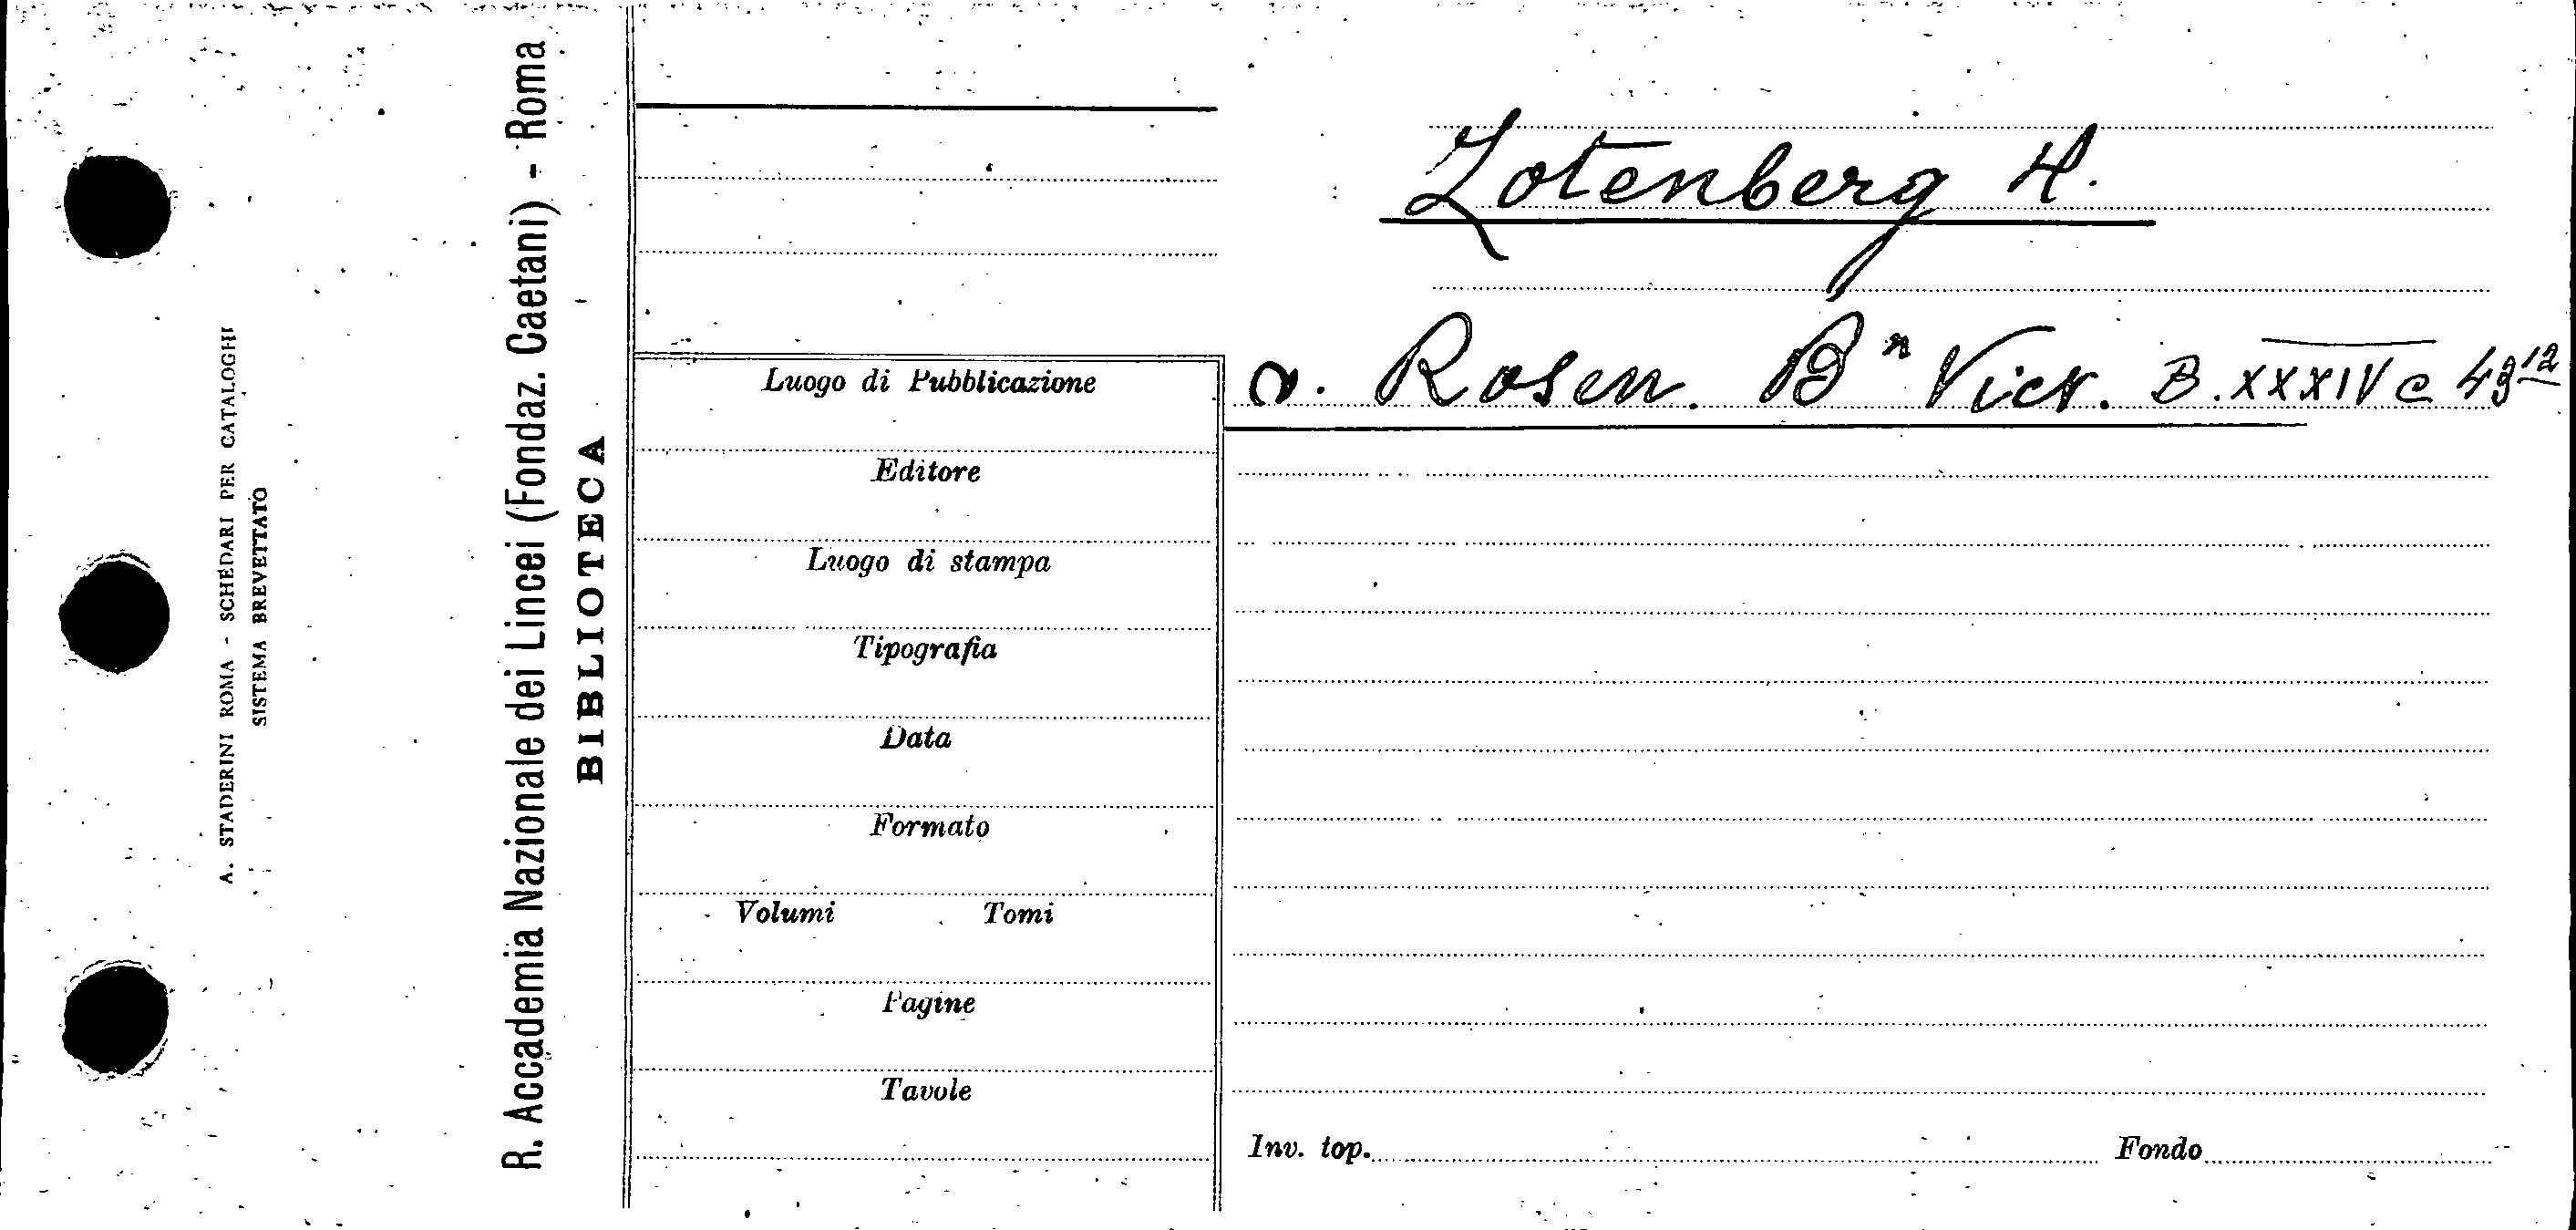 A. STADERINI ROMA - SCHEDARI PER CATALOGHI
SISTEMA BREVETTATO
R. Accademia Nazionale dei Lincei (Fondaz. Caetani) - Roma
BIBLIOTECA
Zotenberg H.
v. Rosen. Bⁿ Vict. B. XXXIV c 43¹²
Luogo di Pubblicazione
Editore
Luogo di stampa
Tipografia
Data
Formato
Volumi Tomi
Pagine
Tavole
Inv. top. Fondo